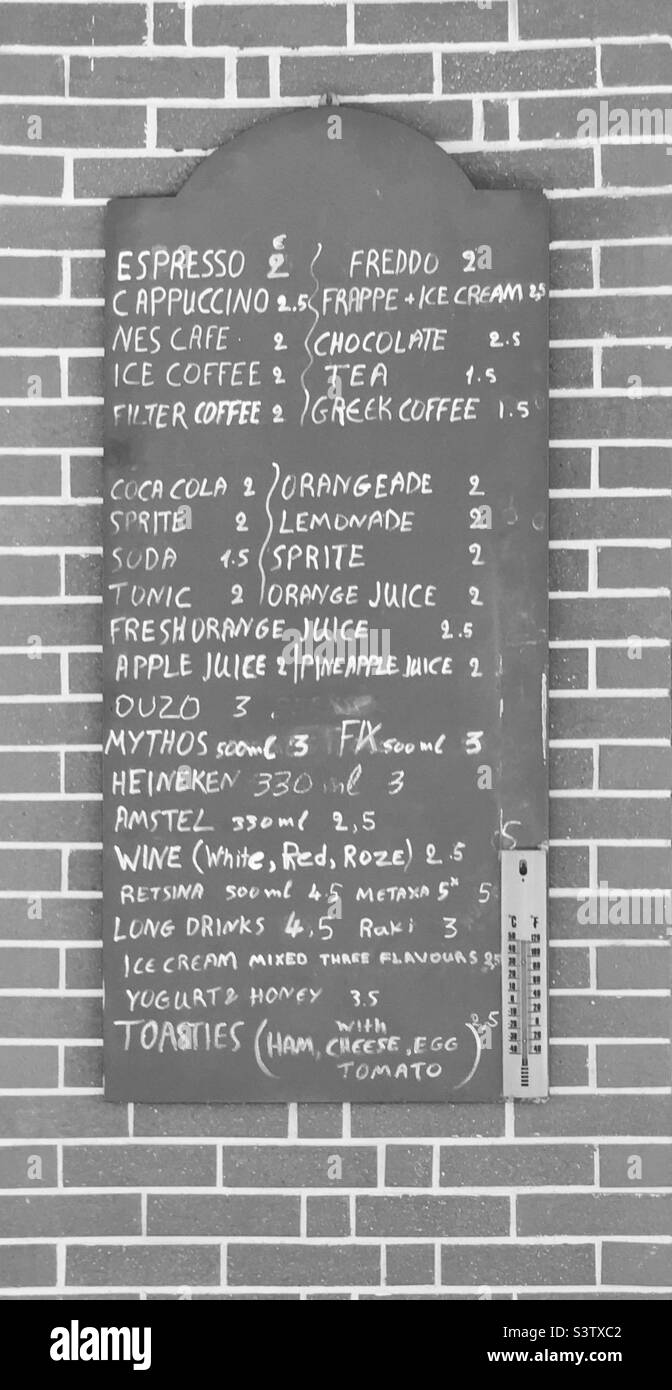 €
ESPRESSO 2 FREDDO 2
CAPPUCCINO 2.5 FRAPPE + ICE CREAM 2,5
NES CAFE 2 CHOCOLATE 2.5
ICE COFFEE 2 TEA 1.5
FILTER COFFEE 2 GREEK COFFEE 1.5
COCA COLA 2 ORANGEADE 2
SPRITE 2 LEMONADE 2
SODA 1.5 SPRITE 2
TONIC 2 ORANGE JUICE 2
FRESH ORANGE JUICE 2.5
APPLE JUICE 2 | PINEAPPLE JUICE 2
OUZO 3
MYTHOS 500ml 3 FIX 500ml 3
HEINEKEN 330 ml 3
AMSTEL 330ml 2,5
WINE (White, Red, Roze) 2.5
RETSINA 500ml 4.5 METAXA 5* 5
LONG DRINKS 4,5 Raki 3
ICE CREAM MIXED THREE FLAVOURS 2,5
YOGURT & HONEY 3.5
TOASTIES (with HAM, CHEESE, EGG TOMATO) 2,5
°C °F
50 120
alamy
Image ID: S3TXC2
www.alamy.com